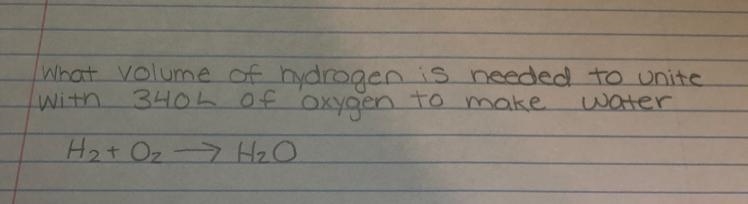 What volume of hydrogen is needed to unite
with 340L of oxygen to make water
H₂ + O₂ → H₂O